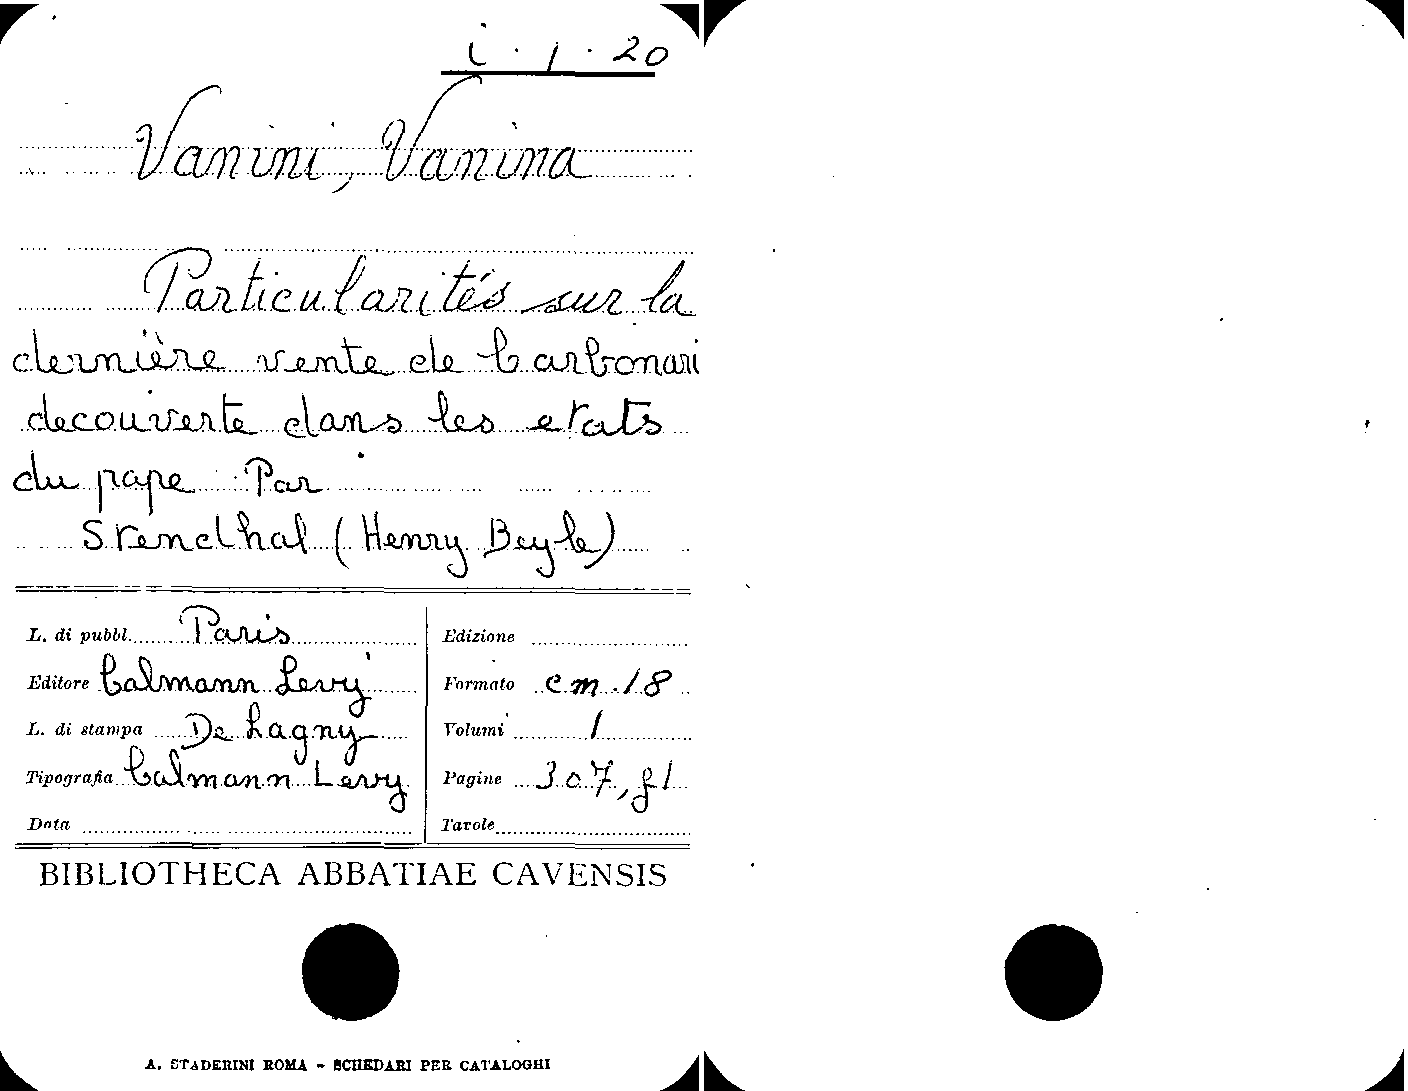 i · 1 · 20
Vanini, Vanina
Particularités sur la
dernière vente de Carbonari
decouverte dans les etats
du pape Par
Stendhal (Henry Beyle)
L. di pubbl. Paris
Edizione
Editore Calmann Levy
Formato cm. 18
L. di stampa De Lagny
Volumi 1
Tipografia Calmann Levy
Pagine 307, f 1
Data
Tavole
BIBLIOTHECA ABBATIAE CAVENSIS
A. STADERINI ROMA - SCHEDARI PER CATALOGHI